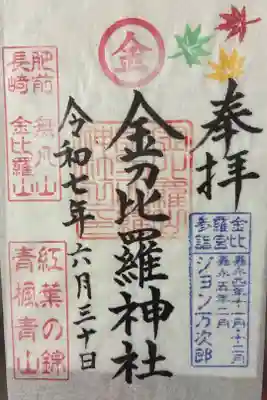 奉拝
金
金刀比羅神社
令和七年六月三十日
金比
羅宮
参詣
嘉永五年二月
ジョン万次郎
肥前 無凡山
長崎 金比羅山
紅葉の錦
青楓青山